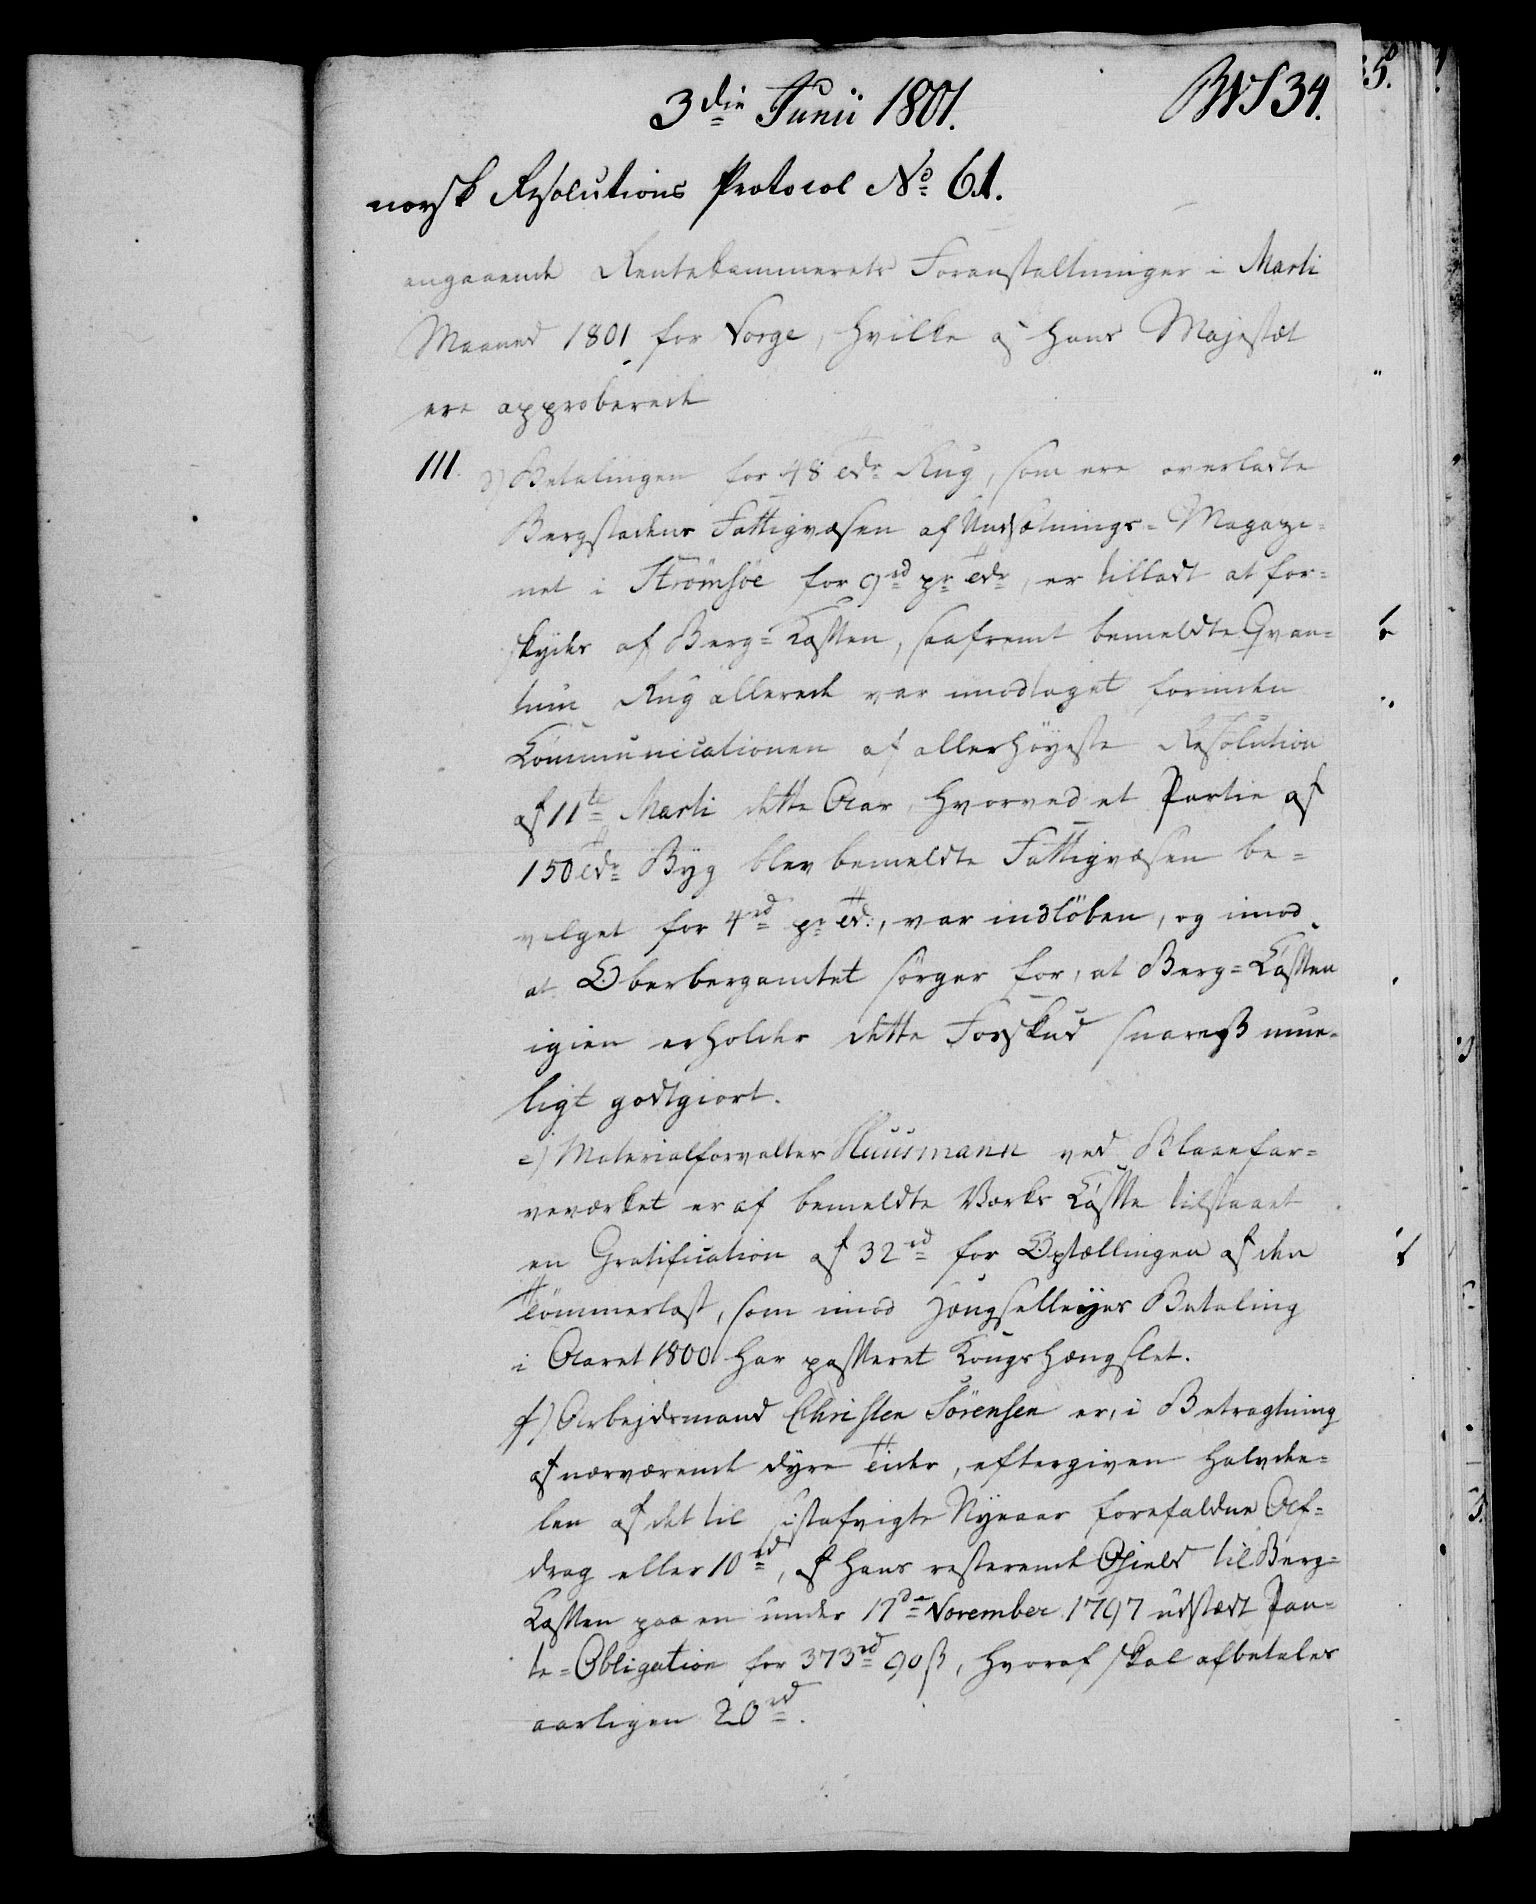 3die Junii 1801. BWS 34.
norsk Resolutions Protocol No 61.
angaaende Rentekammerets Foranstaltninger i Marti
Maaned 1801 for Norge, hvilke af Hans Majestæt
ere approberede
111. d) Betalingen for 48 Tdr Rug, som ere overladte
Bergstadens Fattigvæsen af Undsætnings-Magazi-
net i Strömsöe for 9 rd pr Tdr, er tilladt at for-
skydes af Berg-Cassen, saafremt bemeldte Qvan-
tum Rug allerede var imodtaget forinden
Communicationen af allerhöyeste Resolution
af 11te Marti dette Aar, hvorved et Partie af
150 Tdr Byg blev bemeldte Fattigvæsen be-
vilget for 4 rd pr Td:, var indlöben, og imod
at Oberbergamtet sörger for, at Berg-Cassen
igien erholder dette Forskud snarest mue-
ligt godtgiort.
e) Materialforvalter Huusmann ved Blaaefar-
veværket er af bemeldte Værks Casse tilstaaet
en Gratification af 32 rd for Optællingen af den
Tömmerlast, som imod Hengselleijes Betaling
i Aaret 1800 har passeret Kongshængslet.
f) Arbejdsmand Christen Sörensen er, i Betragtning
af nærværende dyre Tider, eftergiven Halvde-
len af det til sistafvigte Nyeaar forefaldne Af-
drag eller 10 rd, af hans resterende Gield til Berg-
Cassen paa en under 17de November 1797 udstædt Pan-
te-Obligation for 373 rd 90 ß, hvoraf skal afbetales
aarligen 20 rd.